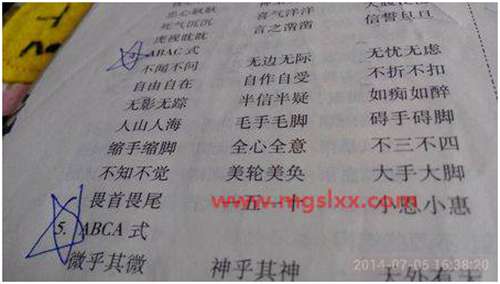 忠心耿耿
死气沉沉 喜气洋洋
虎视眈眈 言之凿凿 信誓旦旦
ABAC 式
不闻不问 无边无际 无忧无虑
自由自在 自作自受 不折不扣
无影无踪 半信半疑 如痴如醉
人山人海 毛手毛脚 碍手碍脚
缩手缩脚 全心全意 不三不四
不知不觉 美轮美奂 大手大脚
畏首畏尾 五一十 小恩小惠
www.mgslxx.com
5. ABCA 式
微乎其微 神乎其神 天外有天
2014-07-05 16:38:20